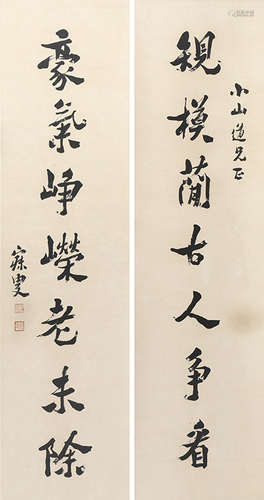 小山道兄正
規模簡古人爭看
豪氣崢嶸老未除
寐叟